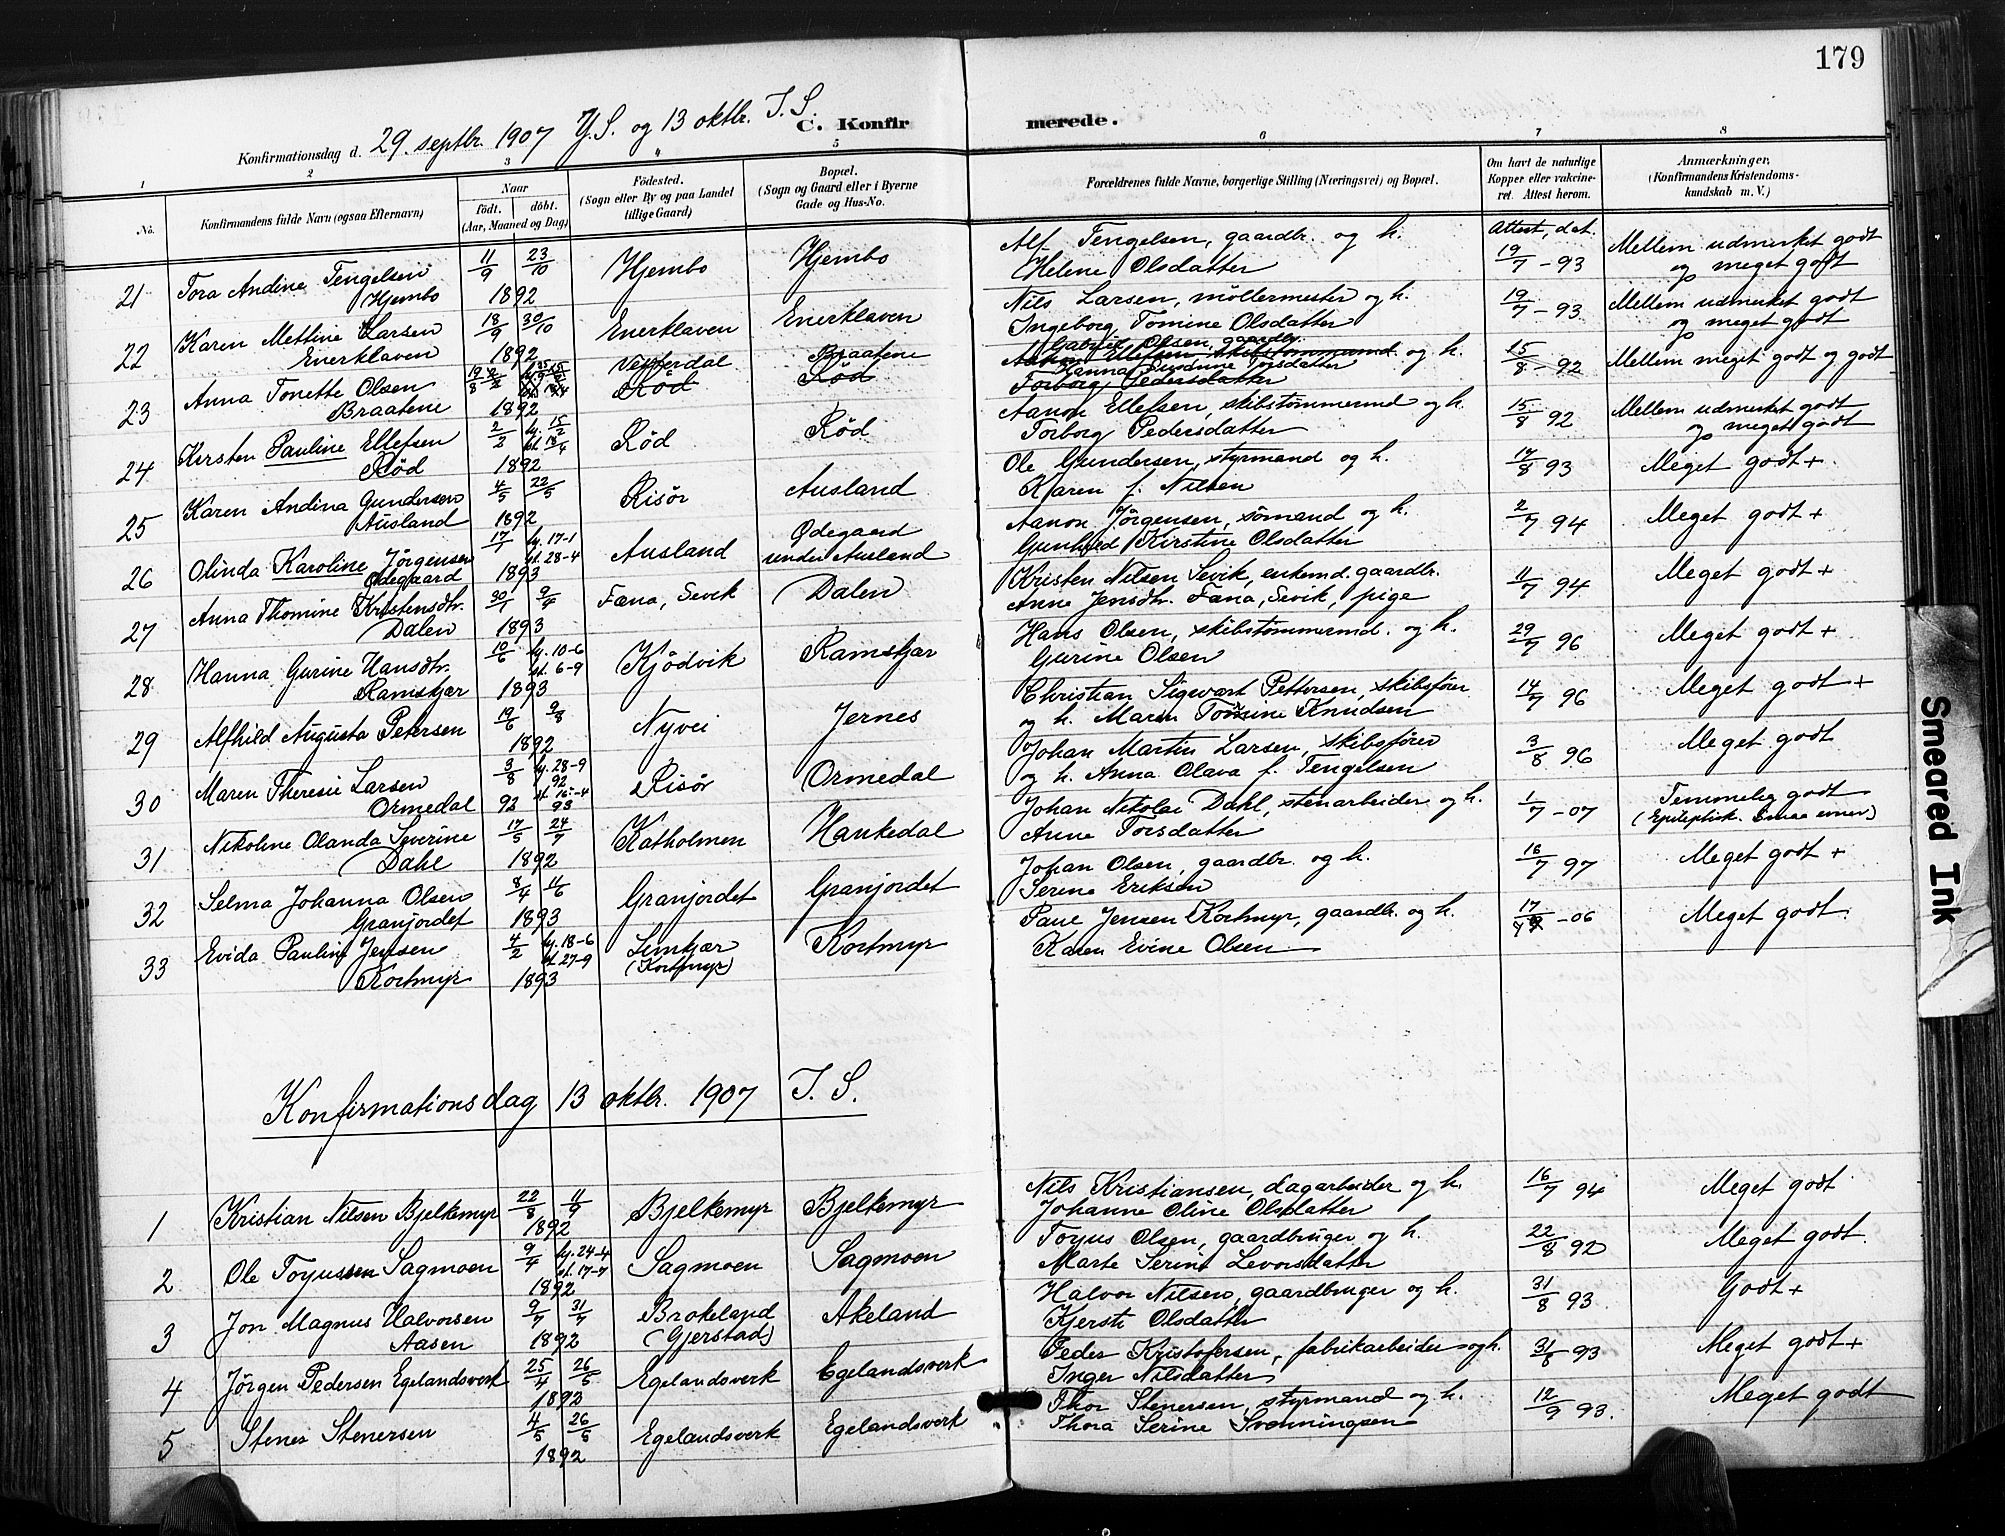 179
29. septbr. 1907 Y.S. og 13 oktbr. I.S.
C. Konfirmerede.
Konfirmationsdag d.
1 2 3 4 5 6 7 8
No.
Konfirmandens fulde Navn (ogsaa Efternavn)
Naar
födt. döbt.
(Aar, Maaned og Dag)
Födested.
(Sogn eller By og paa Landet
tillige Gaard)
Bopæl.
(Sogn og Gaard eller i Byerne
Gade og Hus-No.
Forældrenes fulde Navne, borgerlige Stilling (Næringsvei) og Bopæl.
Om havt de naturlige
Kopper eller vakcine-
ret. Attest herom.
Anmærkninger,
(Konfirmandens Kristendoms-
kundskab m. V.)
Attest, dat.
21 Tora Andine Tengelsen 11/9 23/10 Hjembo Hjembo Alf Tengelsen, gaardbr. og h. 19/7 - 93 Mellem udmerket godt
Hjembo 1892 Helene Olsdatter og meget godt
22 Karen Mettine Larsen 18/9 30/10 Enerklaven Enerklaven Nils Larsen, möllermester og h. 19/7 - 93 Mellem udmerket godt
Enerklaven 1892 Ingeborg Tomine Olsdatter og meget godt
23 Anna Tonette Olsen Braatene Gabriel Olsen, gaardbr. og h. 15/8 - 92 Mellem meget godt og godt
Aanon Ellefsen, skibstømmermd.
Braatene 1892 Röd Röd Torborg Pedersdatter
24 Kirsten Pauline Ellefsen 2/2 hj. 15/2 Röd Röd Aanon Ellefsen, skibstömmermd og h. 15/8 92 Mellem udmerket godt
Röd 1892 Torborg Pedersdatter og meget godt
25 Karen Andina Gundersen 4/5 22/5 Risör Ausland Ole Gundersen, styrmand og h. 17/8 93 Meget godt +
Ausland 1892 Karen f. Nilsen
26 Olinda Karoline Jörgensen 17/1 hj. 17-1 Ausland Ödegaard Aanon Jörgensen, sömand og h. 2/7 94 Meget godt +
Ödegaard 1893 st. 28-4 under Ausland Gunhild Kirstine Olsdatter
27 Anna Thomine Kristensdtr. 30/1 9/4 Fæna, Sevik Dalen Kristen Nilsen Sevik, enkemd. gaardbr. 11/7 94 Meget godt +
Dalen 1893 Anne Jensdtr. Fana, Sevik, pige
28 Hanna Gurine Hansdtr. 10/6 hj. 10-6 Kjödvik Ramskjær Hans Olsen, skibstömmermd. og h. 29/7 96 Meget godt +
Ramskjær 1893 st. 6-9 Gurine Olsen
29 Alfhild Augusta Petersen 19/6 9/8 Nyvei Jernes Christian Sigwart Pettersen, skibsförer 14/7 96 Meget godt +
1892 og h. Maren Tomine Knudsen
30 Maren Theresie Larsen 3/8 hj. 28-9 92 Risör Ormedal Johan Martin Larsen, skibsförer 3/8 96 Meget godt
Ormedal 92 93 og h. Anna Olava f. Tengelsen
31 Nikoline Olanda Severine 17/5 24/7 Katholmen Haukedal Johan Nikolai Dahl, stenarbeider og h. 1/7 - 07 Temmelig godt
Dahl 1892 Anne Torsdatter (Epileptisk. Smaa evner)
32 Selma Johanna Olsen 8/4 11/6 Granjordet Granjordet Johan Olsen, gaardbr. og h. 16/7 97 Meget godt +
Granjordet 1893 Serine Eriksen
33 Evida Pauline Jensen 4/2 hj. 18-6 Limkjær Kortmyr Paul Jensen Kortmyr, gaardbr. og h. - 06 Meget godt
Kortmyr 1893 st. 27-9 (Kortmyr) Karen Evine Olsen
Konfirmationsdag 13 oktbr. 1907 I. S.
1 Kristian Nilsen Bjelkemyr 22/8 11/9 Bjelkemyr Bjelkemyr Nils Kristiansen, dagarbeider og h. 16/7 94 Meget godt
1892 Johanne Oline Olsdatter
2 Ole Toyussen Sagmoen 9/4 hj. 24-4 Sagmoen Sagmoen Toyus Olsen, gaardbruger og h. 22/8 92 Meget godt.
1892 st. 17-7 Marte Serine Levorsdatter
3 Jon Magnus Halvorsen 9/7 31/7 Brokeland Akeland Halvor Nilsen, gaardbruger og h. 31/8 93. Godt +
Aasen 1892 (Gjerstad) Kjersti Olsdatter
4 Jörgen Pedersen Egelandsverk 25/4 26/5 Egelandsverk Egelandsverk Peder Kristofersen, fabrikarbeider og h. 31/8 93 Meget godt +
1892 Inger Nilsdatter
5 Stener Stenersen 4/5 26/5 Egelandsverk Egelandsverk Thor Stenersen, styrmand og h. 12/9 93. Meget godt
1892 Thora Serine Svenningsen
Smeared Ink